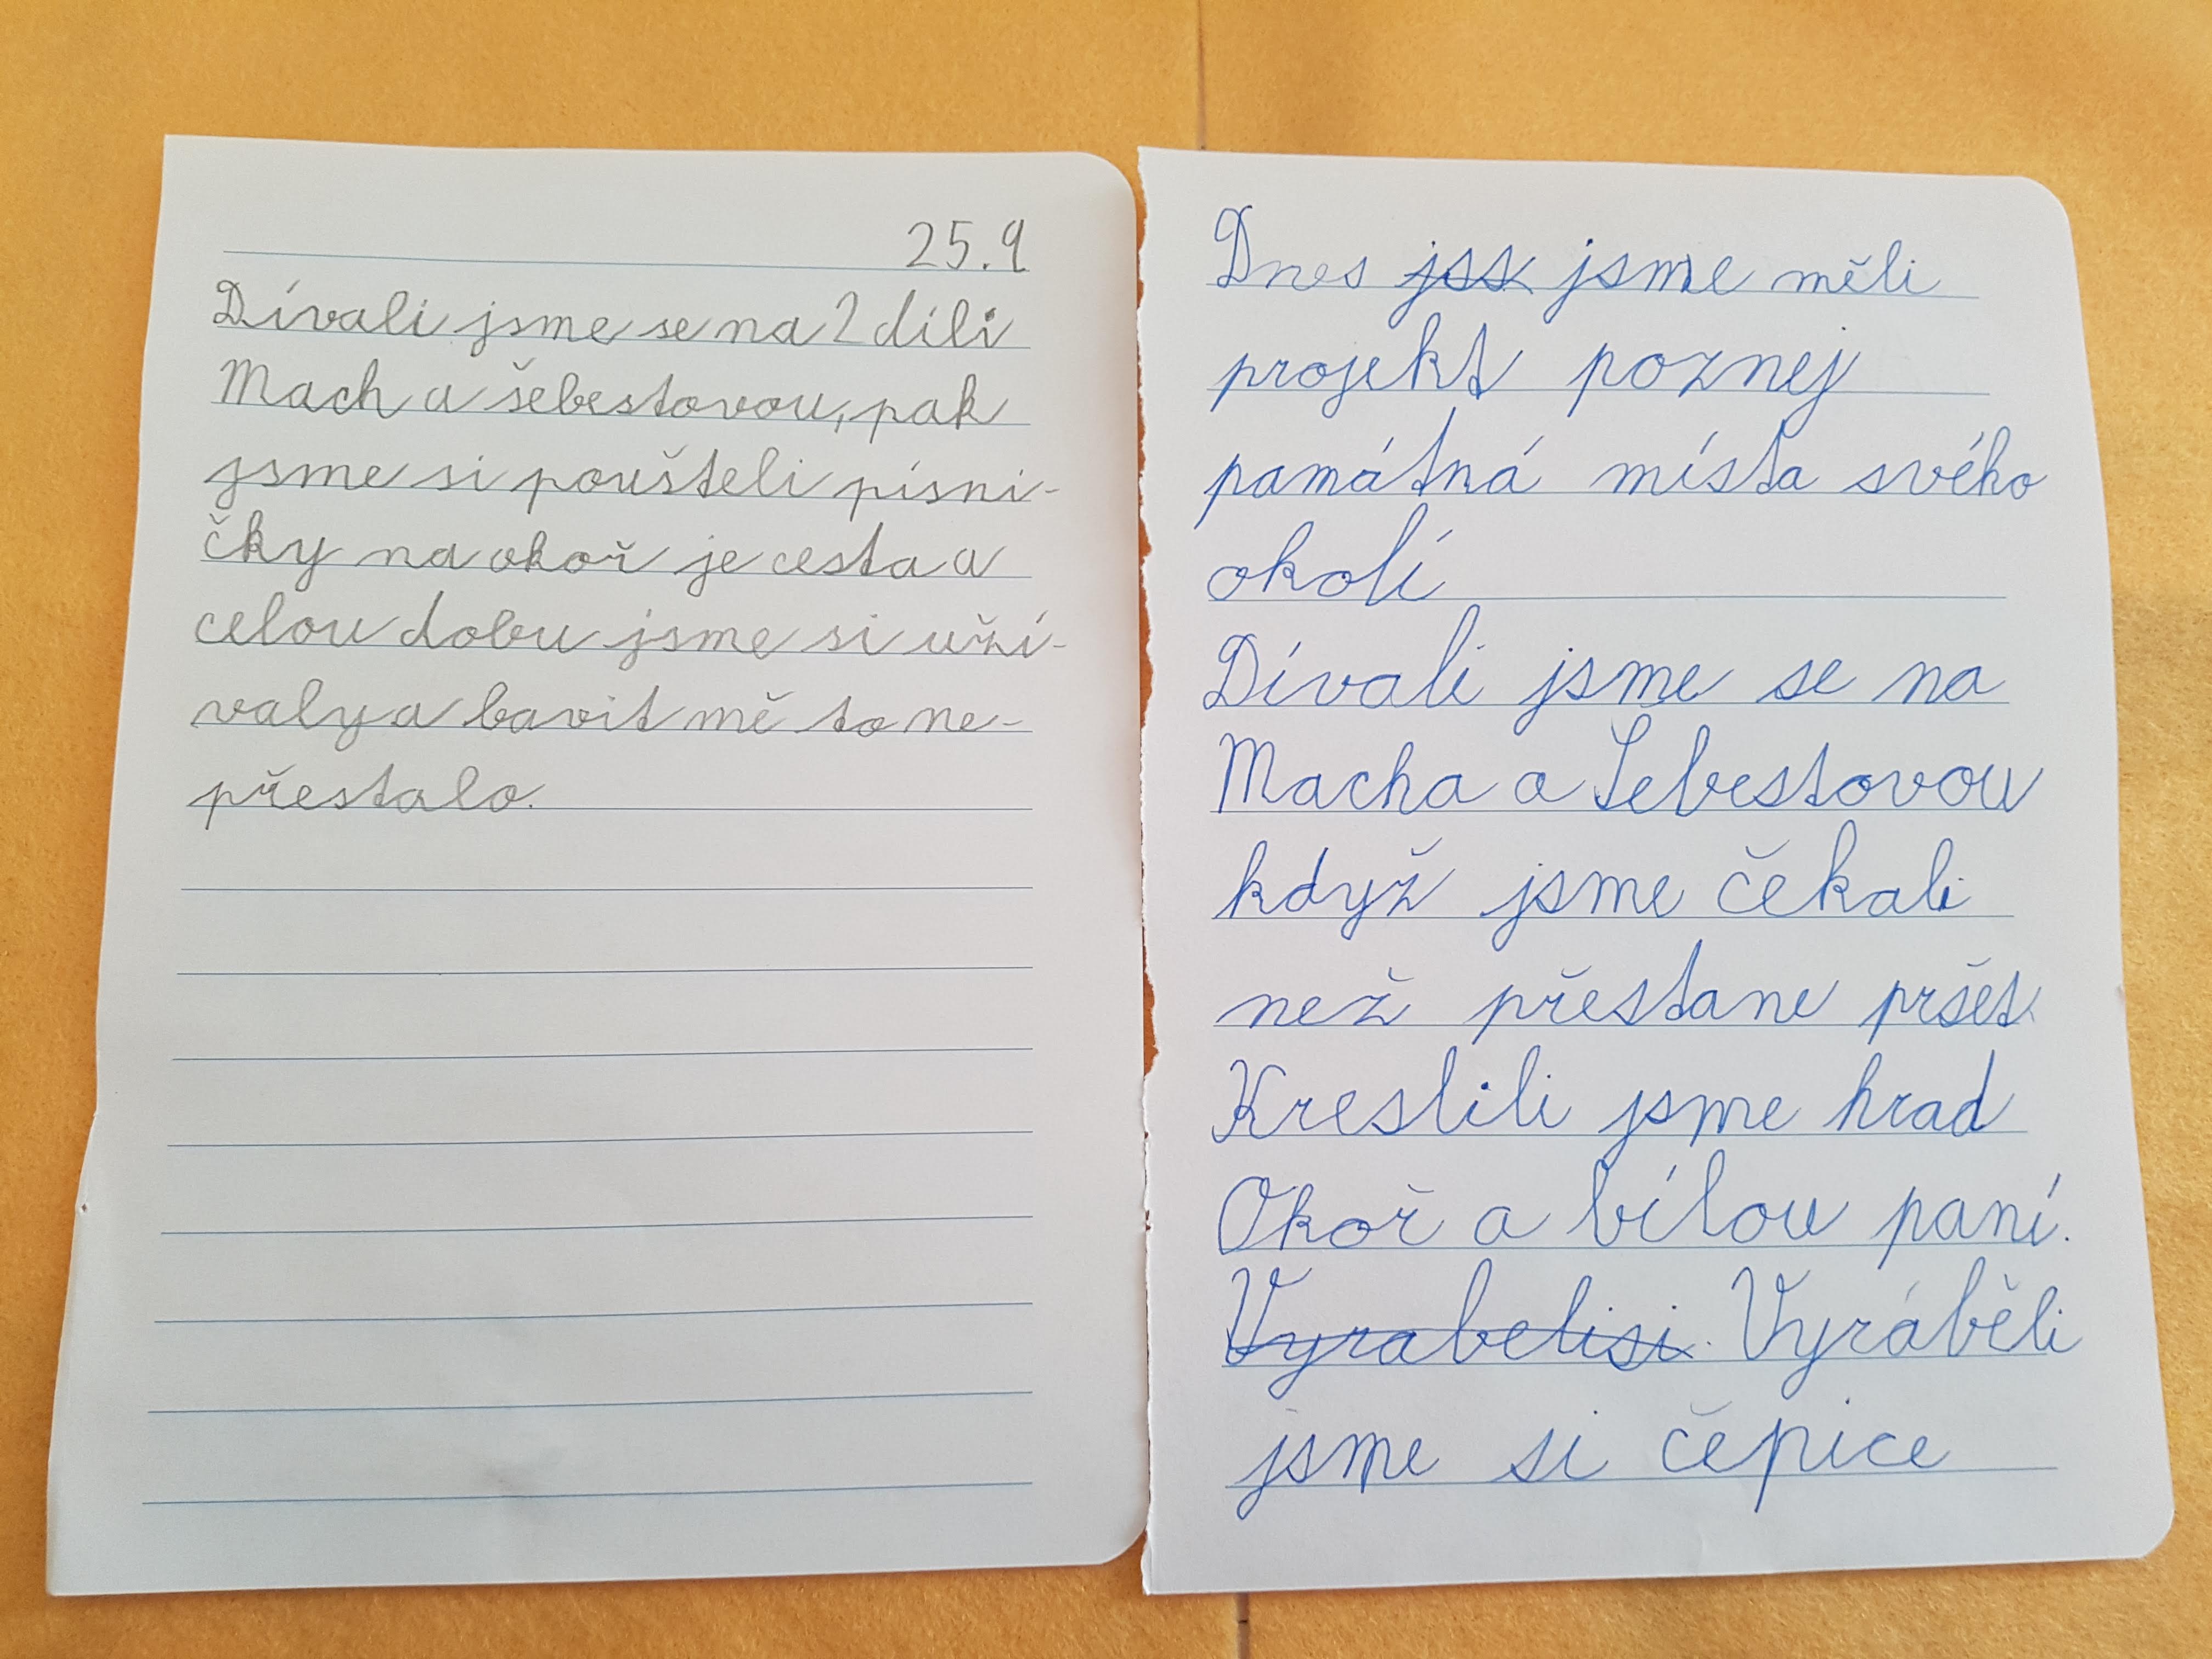 25.9
Dívali jsme se na 2 díli
Mach a šebestovou, pak
jsme si poušteli písni-
čky na okoř je cesta a
celou dobu jsme si uží-
valy a bavit mě to ne-
přestalo.
Dnes jss jsme měli
projekt poznej
památná místa svého
okolí
Dívali jsme se na
Macha a Šebestovou
když jsme čekali
než přestane pršet.
Kreslili jsme hrad
Okoř a bílou paní.
Vyrabelisi. Vyráběli
jsme si čepice